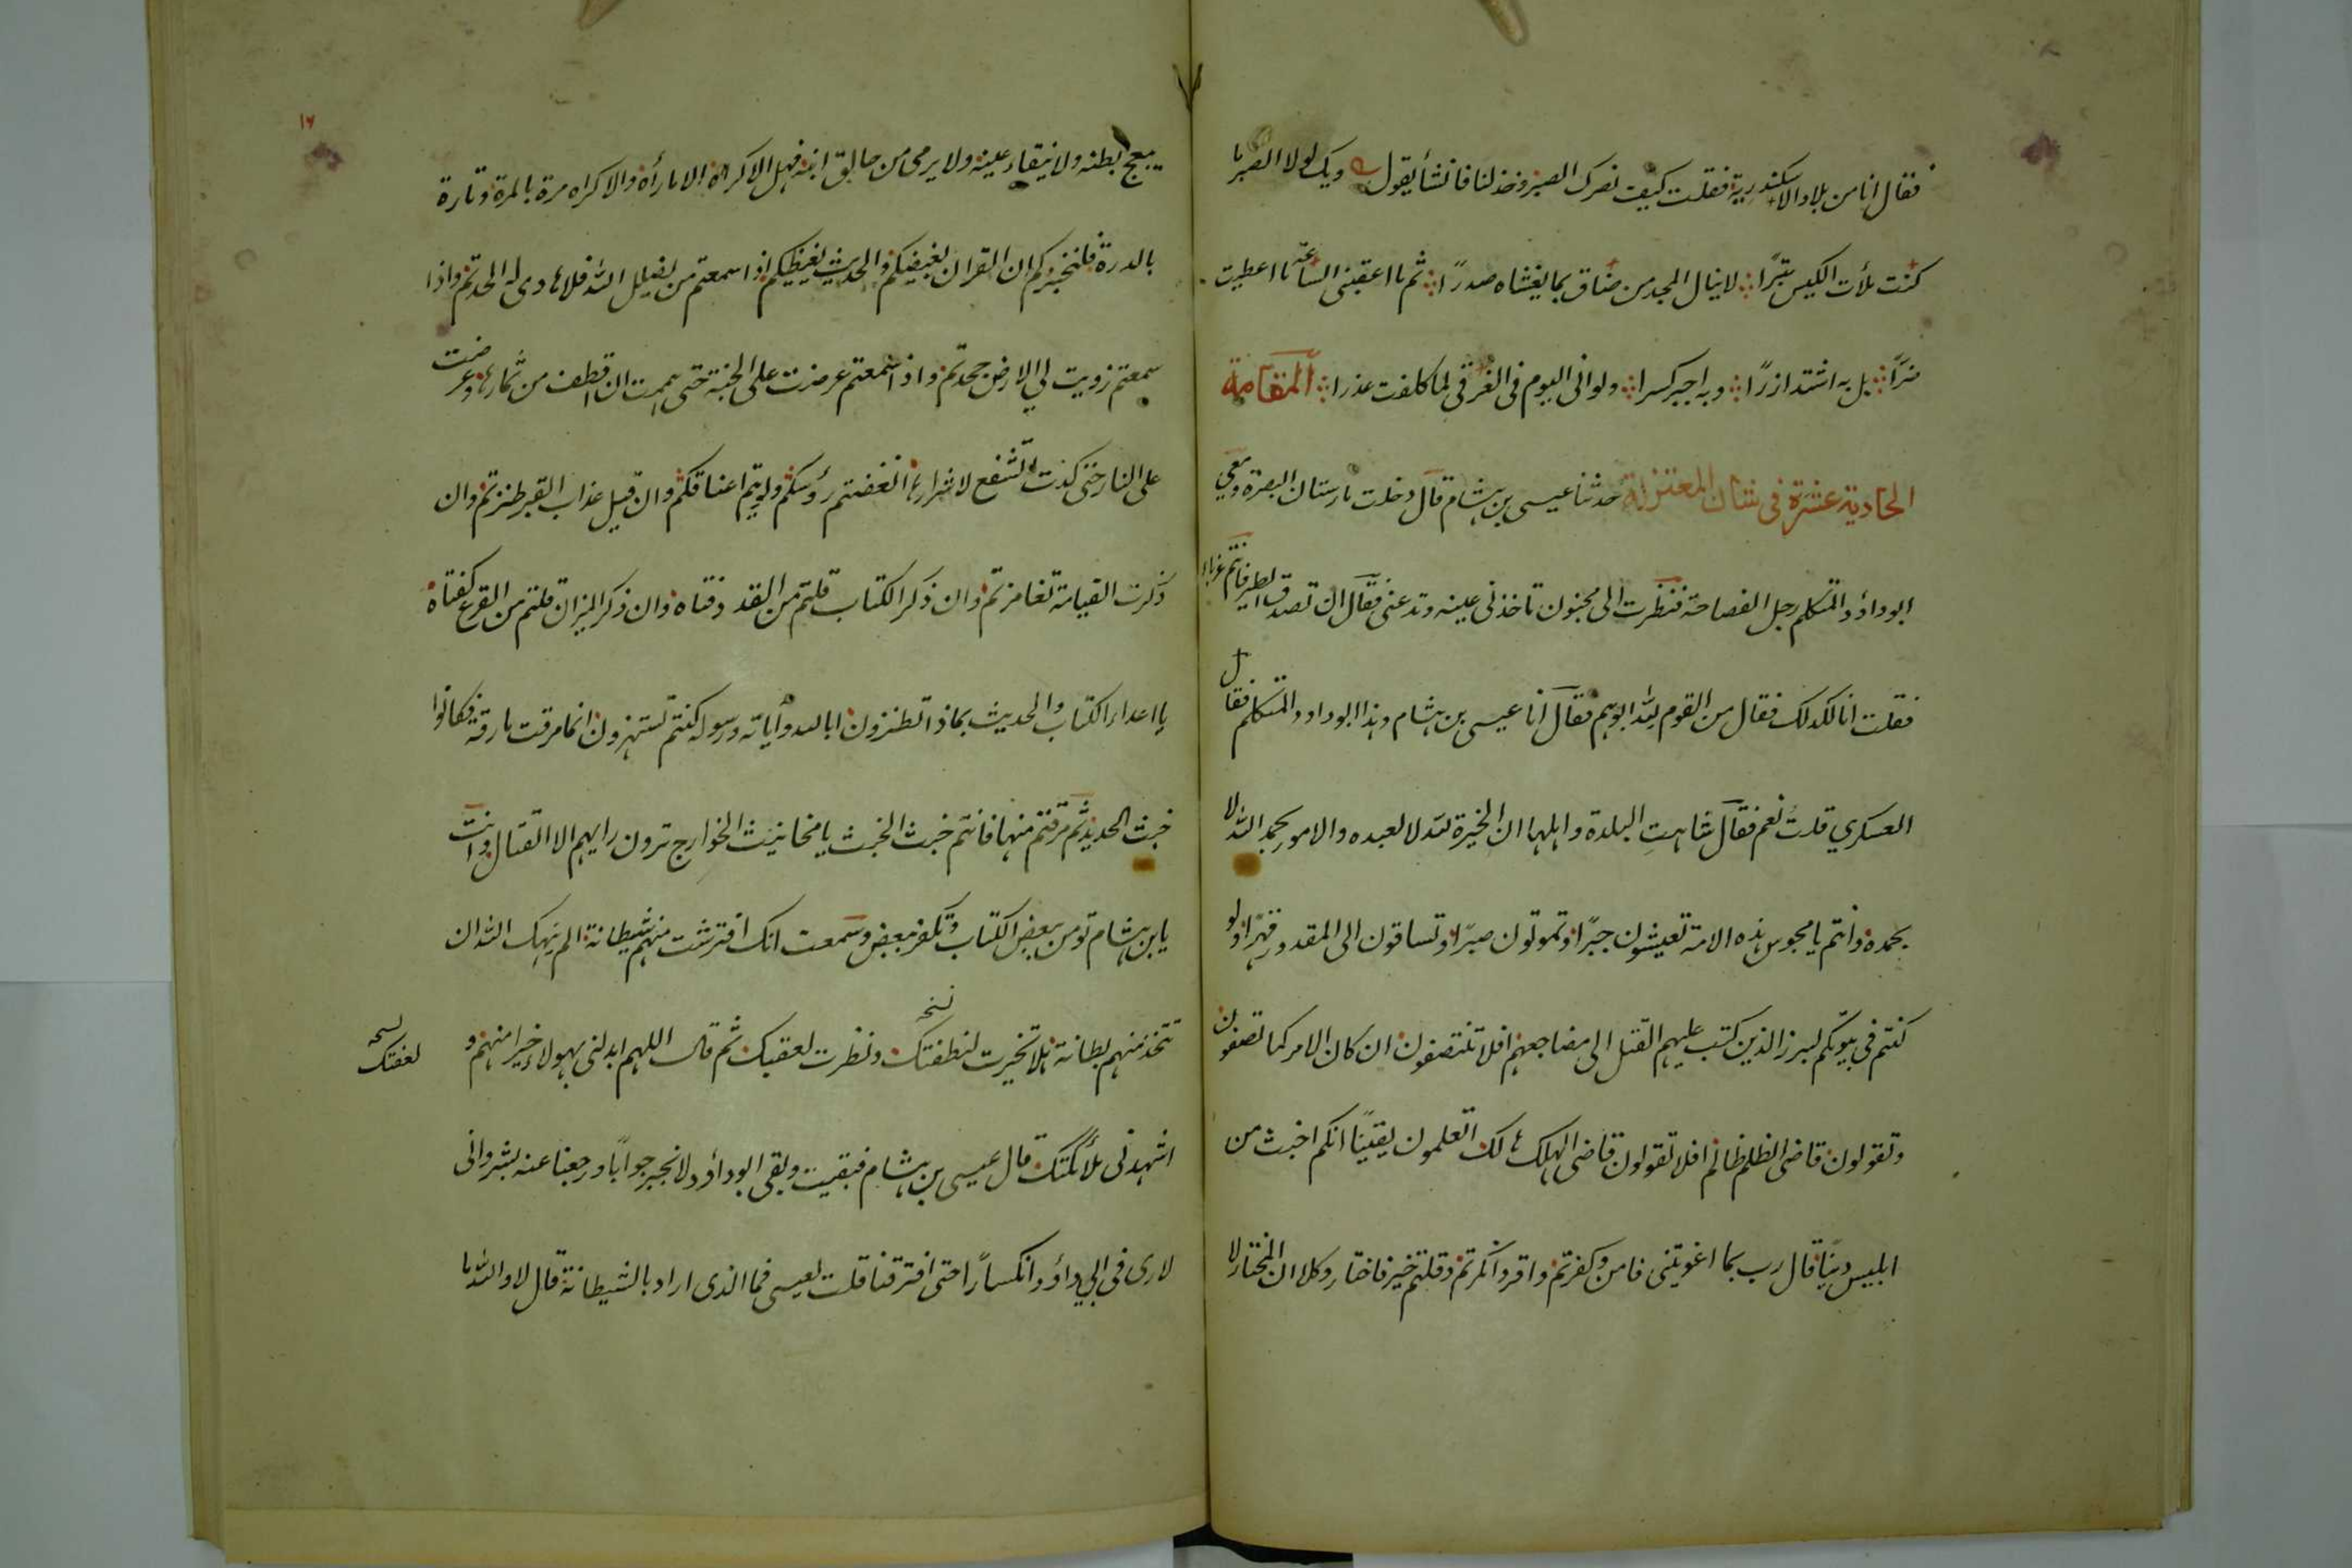 فقال انا من بلاد الاسكندرية فقلت كيف نصرك الصبر وخذلنا فانشأ يقول ويك لولا الصبر ما
كنت ملأت الكيس تبرًا لا ينال المجد من ضاق بما يغشاه صدرًا ثم ما اعقبنى الساعة ما اعطيت
ضرًا بل به اشتد ازرًا وبه اجبر كسرا ولو انى اليوم فى الغرقى لما كلفت عذرا المقامة
الحادية عشرة فى شان المعتزلة حدثنا عيسى بن هشام قال دخلت مارستان البصرة ومعي
ابو داؤد المتكلم رجل الفصاحة فنظرت الى مجنون تاخذنى عينه وتدعنى فقال ان تصدق الطير فانتم غرباء
فقلت انا لكذلك فقال من القوم لله ابوهم فقال انا عيسى بن هشام وهذا ابو داود المتكلم فقال
العسكري قلت نعم فقال شاهت البلدة واهلها ان الخيرة لله لا لعبده والامور بحمد الله لا
بحمده وانتم يا مجوس هذه الامة تعيشون جبرًا وتموتون صبرًا وتساقون الى المقدور قهرًا ولو
كنتم فى بيوتكم لبرز الذين كتب عليهم القتل الى مضاجعهم افلا تنتصفون ان كان الامر كما تصفون
وتقولون قاضى الظلم ظالم افلا تقولون قاضى الهلك هالك اتعلمون يقينًا انكم اخبث من
ابليس دينًا قال رب بما اغويتنى فامن وكفرتم واقر وانكرتم وقلتم خير فاختار وكلا ان المختار لا
١٦
يبعج بطنه ولا يفقاء عينه ولا يرمى من حالق ابنه فهل الاكراه الا ما رأه والاكراه مرة بالمرة وتارة
بالدرة فلنخبركم ان القران بغيضكم والحديث يغيظكم اذا سمعتم من يضلل الله فلا هادى له الحدتم واذا
سمعتم زويت لي الارض جحدتم واذا سمعتم عرضت على الجنة حتى هممت ان اقطف من ثمارها وعرضت
على النار حتى كدت اشفع لاشرارها انغضتم رؤسكم ولويتم اعناقكم وان قيل عذاب القبر طنزتم وان
ذكرت القيامة تغامزتم وان ذكر الكتاب قلتم من القد دفتاه وان ذكر الميزان قلتم من القرع كفتاه
يا اعداء الكتاب والحديث بماذا تطنزون ابالله وآياته ورسوله كنتم تستهزون انما مرقت مارقة فكانوا
خبث الحديث ثم مرقتم منها فانتم خبث الخبث يا مخانيث الخوارج ترون رايهم الا القتال وانت
يا بن هشام تومن ببعض الكتاب وتكفر ببعض وسمعت انك افترشت منهم شيطانة الم ينهك الله ان
تتخذ منهم بطانة هلا تخيرت لنطفتك ونظرت لعقبك ثم قال اللهم ابدلنى بهولاء خيرا منهم و
نسخه
لنسخه
اشهدنى ملائكتك قال عيسى بن هشام فبقيت وبقى ابو داؤد لا نحير جوابًا ورجعنا عنه بشر وانى
لارى فى ابي داؤد انكسارًا حتى افترقنا قلت لعيسى فما الذى اراد بالشيطانة قال لا والله ما